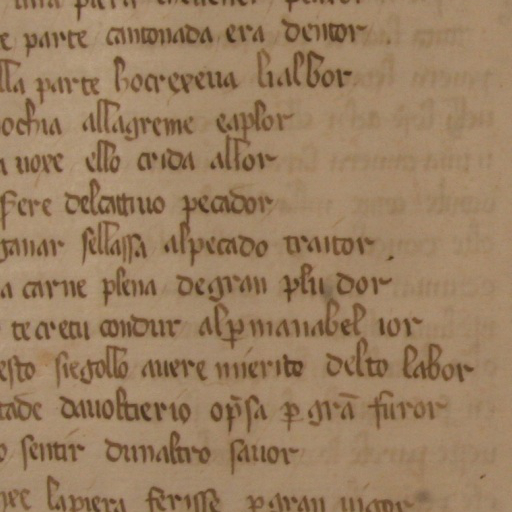 parte cantonada era dentor
lla parte hocrexeua lialbor
ochia allagreme eaplor
a uore ello crida altor
fere delcattiuo pecador
ganar sellassa alpecado traitor
a carne plena degran pludor
te cretu condur alꝑmanabel ior
esto siegollo auere merito delto labor
tade dauoltierio op̄sa ꝑ grā furor
o sentir dunaltro sauor
lapiera ferisse ꝑgran uigor